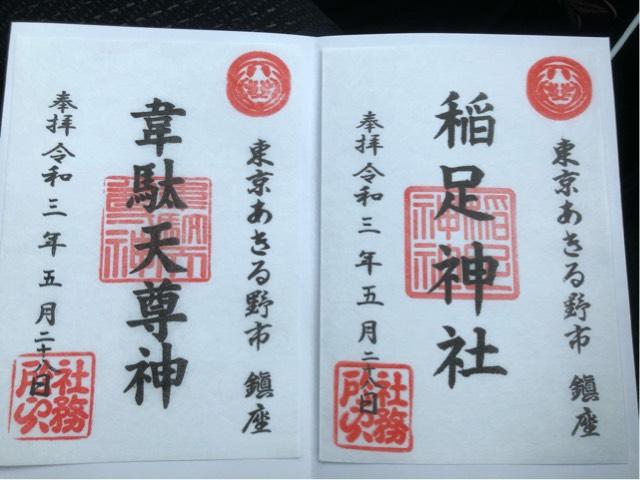 東京あきる野市 鎮座
稲足神社
奉拝 令和三年五月二十八日
稲足神社
社務所
東京あきる野市 鎮座
韋駄天尊神
奉拝 令和三年五月二十八日
社務所